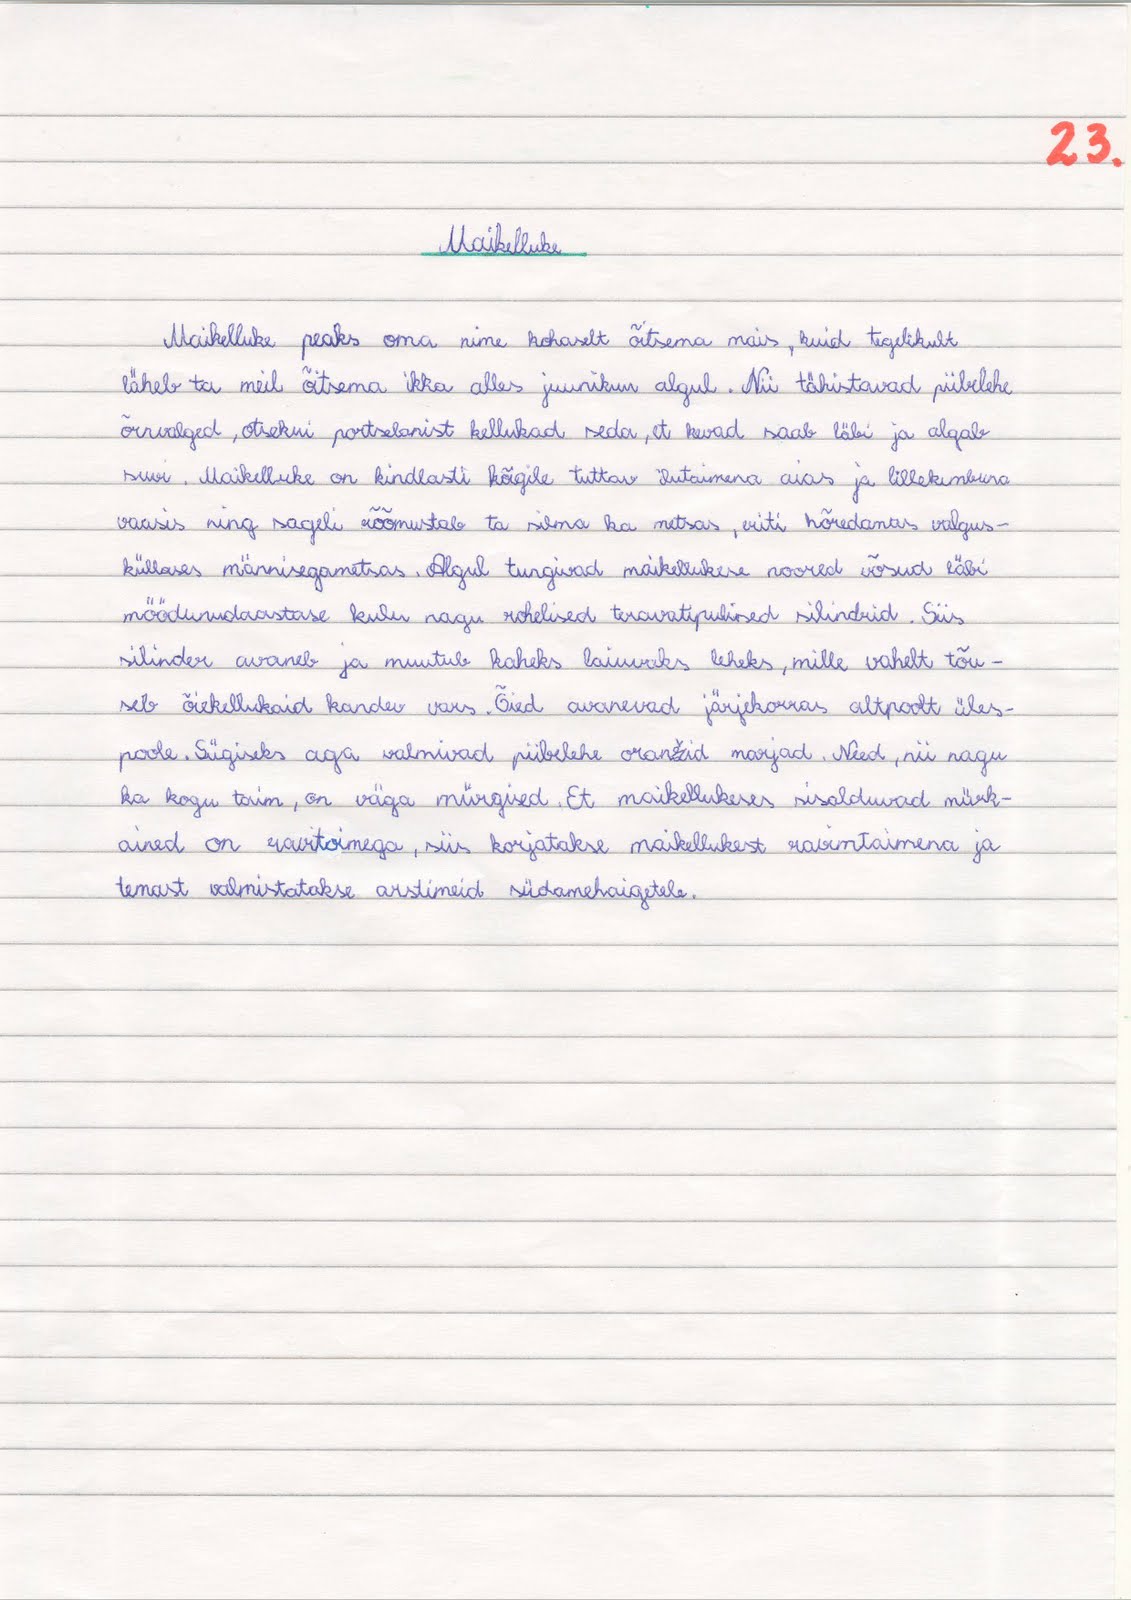 23.
Maikelluke
Maikelluke peaks oma nime kohaselt õitsema mais, kuid tegelikult
läheb ta meil õitsema ikka alles juunikuu algul. Nii tähistavad piibelehe
õrnvalged, otsekui portselanist kellukad seda, et kevad saab läbi ja algab
suvi. Maikelluke on kindlasti kõigile tuttav ilutaimena aias ja lillekimbuna
vaasis ning sageli rõõmustab ta silma ka metsas, eriti hõredamas valgus-
külluses männisegametsas. Algul tungivad maikellukese noored võsud läbi
möödunudaastase kulu nagu rohelised teravatipulised silindrid. Siis
silinder avaneb ja muutub kaheks laiuvaks leheks, mille vahelt tõu-
seb õiekellukaid kandev vars. Õied avanevad järjekorras altpoolt üles-
poole. Sügiseks aga valmivad piibelehe oranžid marjad. Need, nii nagu
ka kogu taim, on väga mürgised. Et maikellukeses sisalduvad mürk-
ained on ravitoimega, siis korjatakse maikellukest ravimtaimena ja
temast valmistatakse arstimeid südamehaigetele.